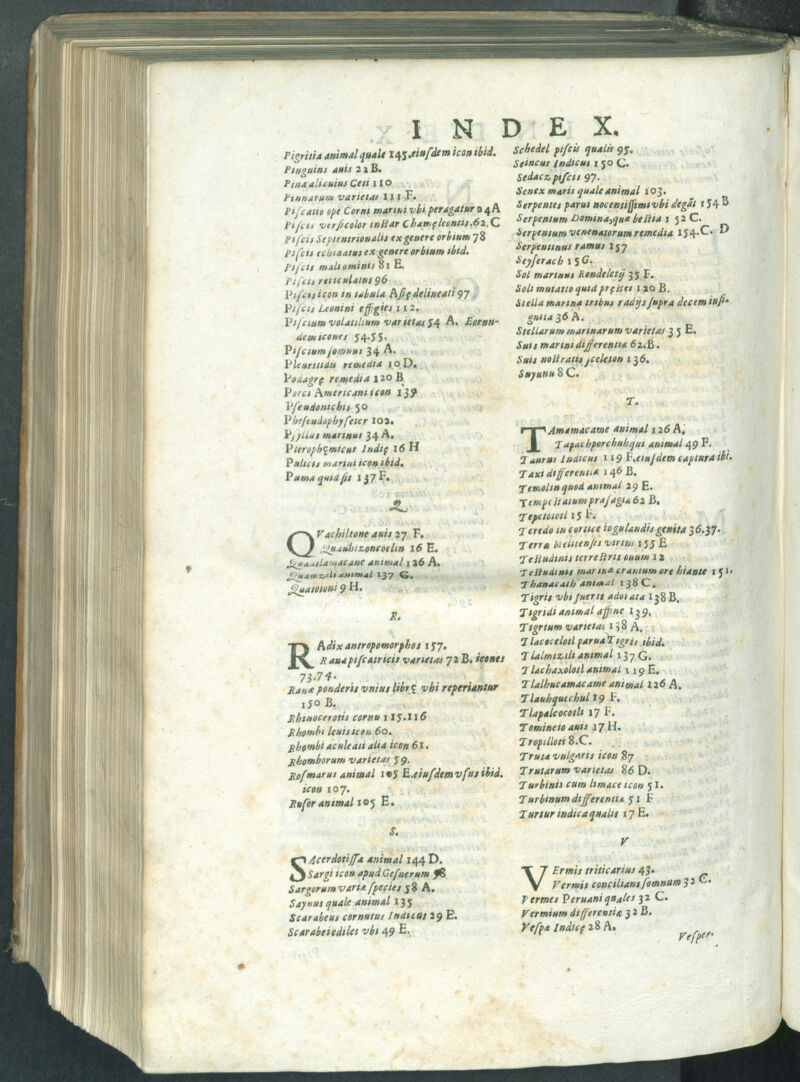 INDEX.
Pigritia animal quale 145. eiuſdem icon ibid.
Pinguins auis 22 B.
Pina alicuius Ceti 110
Pinnarum varietas 111 F.
Piſcatio ope Corni marini vbi peragatur 24 A
Piſcis verſicolor inſtar Chamęleontis. 62. C
Piſcis Septentrionalis ex genere orbium 78
Piſcis echinatus ex genere orbium ibid.
Piſcis mali ominis 81 E.
Piſcis reticulatus 96
Piſcis icon in tabula Aſię delineati 97
Piſcis Leonini effigies 112.
Piſcium volatilium varietas 54 A. Eorun-
dem icones 54.55.
Piſcium ſomnus 34 A.
Pleuritidis remedia 10 D.
Podagrę remedia 120 B
Porci Americani icon 139
Pſeudonichis 50
Pheſeudophyſeter 102.
Pſyllus marinus 34 A.
Pterophęnicus Indię 16 H
Pulicis marini icon ibid.
Puma quid ſit 137 F.
Q
QVachiltone auis 27 F.
Quauhtzonecolin 16 E.
Quautlamacane animal 126 A.
Quamztli animal 137 G.
Quatotoni 9 H.
R.
RAdix antropomorphos 157.
Rana piſcatricis varietas 72 B. icones
73.74.
Ranæ ponderis vnius librę vbi reperiantur
150 B.
Rhinocerotis cornu 115.116
Rhombi leuis icon 60.
Rhombi aculeati alia icon 61.
Rhomborum varietas 59.
Roſmarus animal 105 E. eiuſdem vſus ibid.
icon 107.
Ruſor animal 105 E.
S.
SAcerdotiſſa animal 144 D.
Sargi icon apud Geſnerum 58
Sargorum varia ſpecies 58 A.
Saynus quale animal 135
Scarabeus cornutus Indicus 29 E.
Scarabei ediles vbi 49 E.
Schedel piſcis qualis 95.
Scincus Indicus 150 C.
Sedacz piſcis 97.
Senex maris quale animal 103.
Serpentes parui nocentiſſimi vbi degāt 154 B
Serpentum Domina, quæ beſtia 152 C.
Serpentum venenatorum remedia 154. C. D
Serpentinus ramus 157
Seyſerach 15 G.
Sol marinus Rondeletij 35 F.
Soli mutatio quid pręſtet 120 B.
Stella marina tribus radijs ſupra decem inſi-
gnita 36 A.
Stellarum marinarum varietas 35 E.
Suis marini differentia 62. B.
Suis noſtratis ſceleton 136.
Suyunu 8 C.
T.
TAmamacame animal 126 A.
Tapachporchuhqui animal 49 F.
Taurus Indicus 119 F. eiuſdem captura ibi.
Taxi differentiæ 146 B.
Temolin quod animal 29 E.
Tempeſtatum præſagia 62 B.
Tepotototl 15 F.
Teredo in cortice iugulandis genita 36.37.
Terræ Melitenſis virtus 155 E
Teſtudinis terreſtris ouum 12
Teſtudinis marinæ cranium ore hiante 151.
Thanacath animal 138 C.
Tigris vbi fuerit adorata 138 B.
Tigridi animal affine 139.
Tigrium varietas 138 A.
Tlacocelotl parua Tigris ibid.
Tlalmiztli animal 137 G.
Tlachaxolotl animal 119 E.
Tlalhucamacame animal 126 A.
Tlauhquechul 19 F.
Tlapalcocotli 17 F.
Tomineio auis 17 H.
Tropilloti 8. C.
Truta vulgaris icon 87
Trutarum varietas 86 D.
Turbinis cum limace icon 51.
Turbinum differentia 51 F
Turtur indica qualis 17 E.
V
VErmis triticarius 43.
Vermis concilians ſomnum 32 C.
Vermes Peruani quales 32 C.
Vermium differentiæ 32 B.
Veſpa Indicę 28 A.
Veſper.